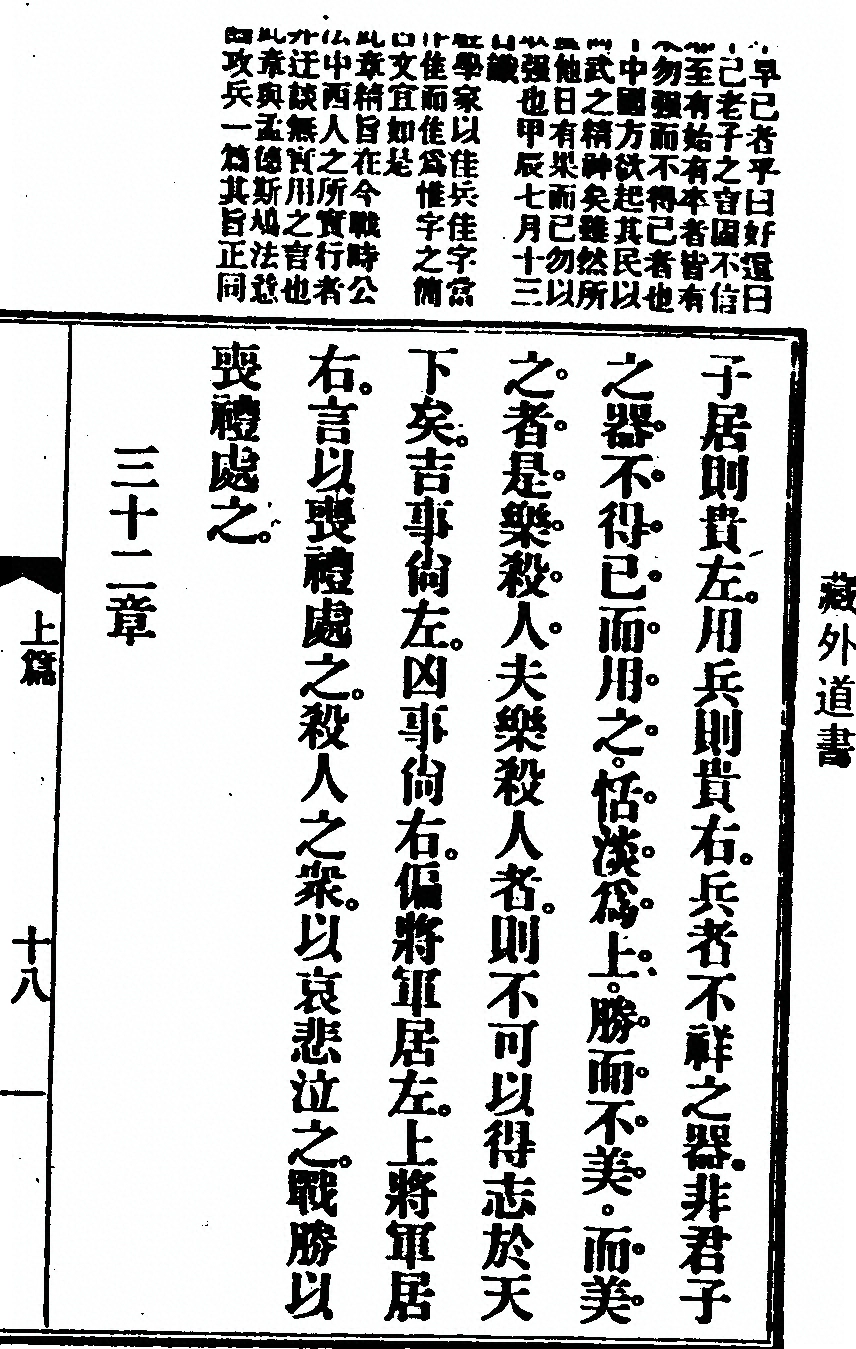 藏外道書
早已者乎曰好還曰
己老子之言固不信
至有始有卒者皆有
勿强而不得已者也
中國方欲起其民以
武之精神矣雖然所
他日有果而已勿以
强也甲辰七月十三
識
學家以佳兵佳字當
佳而佳爲惟字之簡
文宜如是
章精旨在今戰時公
中西人之所實行者
迂談無實用之言也
章與孟德斯鳩法意
攻兵一篇其旨正同
子居則貴左。用兵則貴右。兵者不祥之器。非君子
之器。不得已而用之。恬淡爲上。勝而不美。而美
之者。是樂殺人。夫樂殺人者。則不可以得志於天
下矣。吉事尙左。凶事尙右。偏將軍居左。上將軍居
右。言以喪禮處之。殺人之衆。以哀悲泣之。戰勝以
喪禮處之。
三十二章
上篇
十八